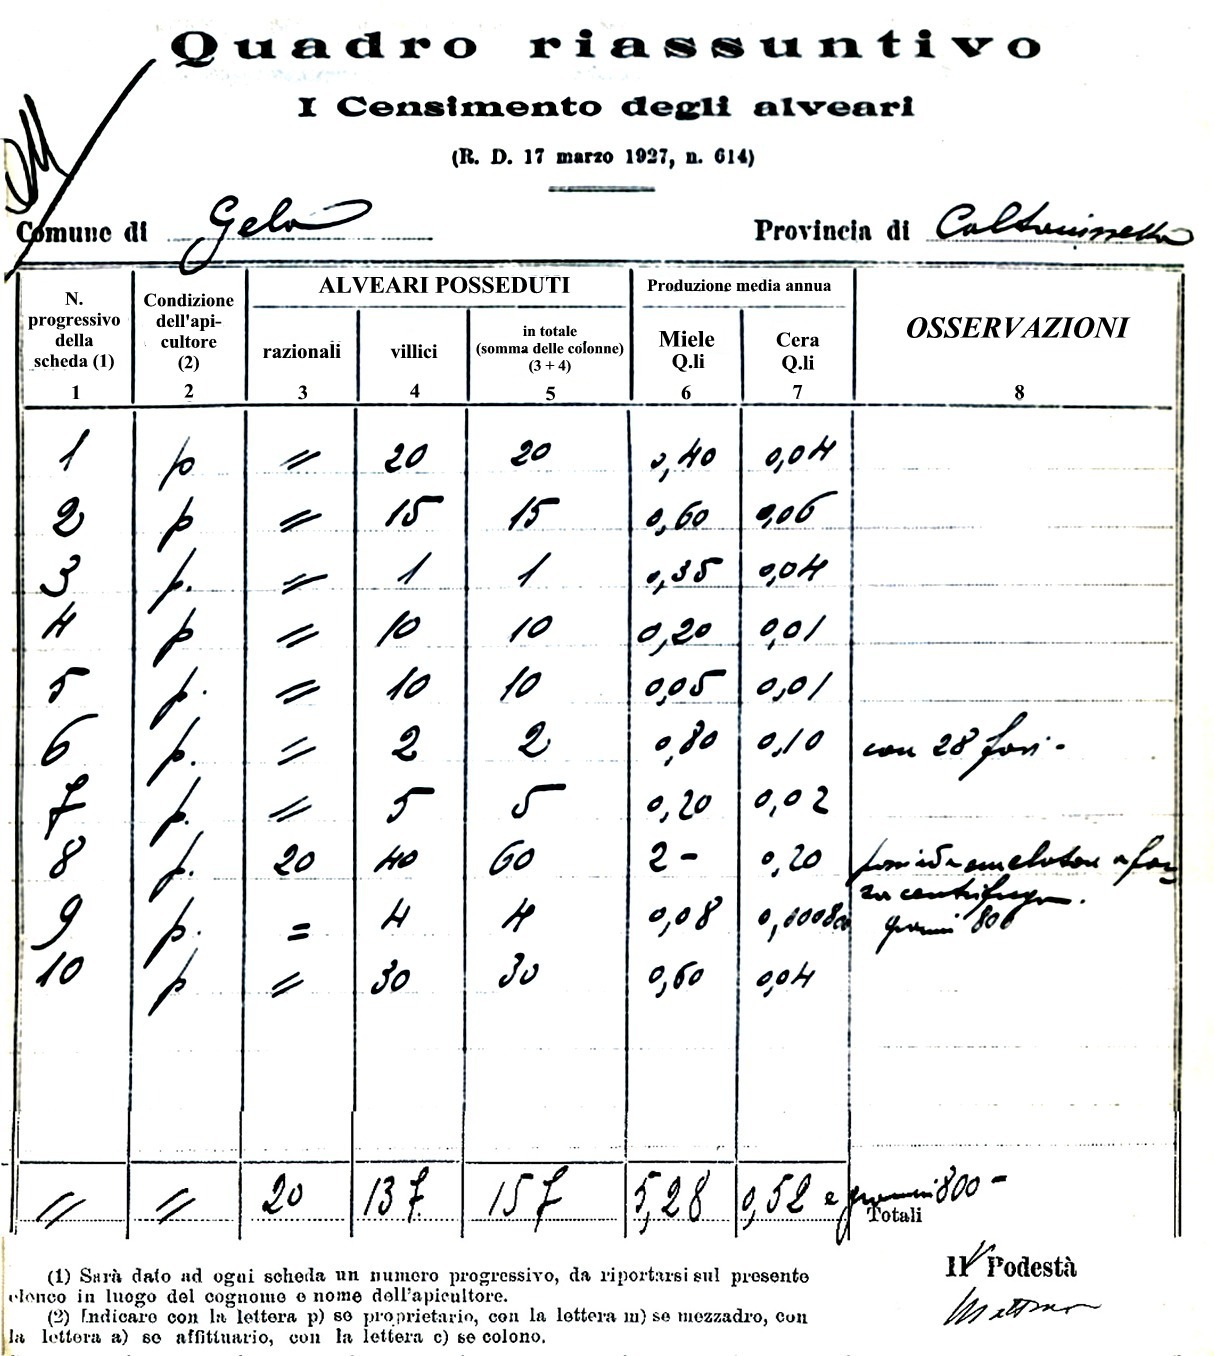 Quadro riassuntivo
I Censimento degli alveari
(R. D. 17 marzo 1927, n. 614)
Comune di Gela Provincia di Caltanissetta
N. progressivo della scheda (1) Condizione dell'api-cultore (2) ALVEARI POSSEDUTI Produzione media annua OSSERVAZIONI
razionali villici in totale (somma delle colonne) (3 + 4) Miele Q.li Cera Q.li
1 2 3 4 5 6 7 8
1 p " 20 20 0,40 0,04
2 p " 15 15 0,60 0,06
3 p. " 1 1 0,35 0,04
4 p " 10 10 0,20 0,01
5 p. " 10 10 0,05 0,01
6 p. " 2 2 0,80 0,10 con 28 favi.
7 p. " 5 5 0,20 0,02
8 p. 20 40 60 2 - 0,20 smelatore a for=
za centrifuga.
9 p. = 4 4 0,08 0,00800 grammi 800
10 p " 30 30 0,60 0,04
" " 20 137 157 5,28 0,52 e grammi 800 -
Totali
(1) Sarà dato ad ogni scheda un numero progressivo, da riportarsi sul presente
elenco in luogo del cognome e nome dell'apicultore.
(2) Indicare con la lettera p) se proprietario, con la lettera m) se mezzadro, con
la lettera a) se affittuario, con la lettera c) se colono.
Il Podestà